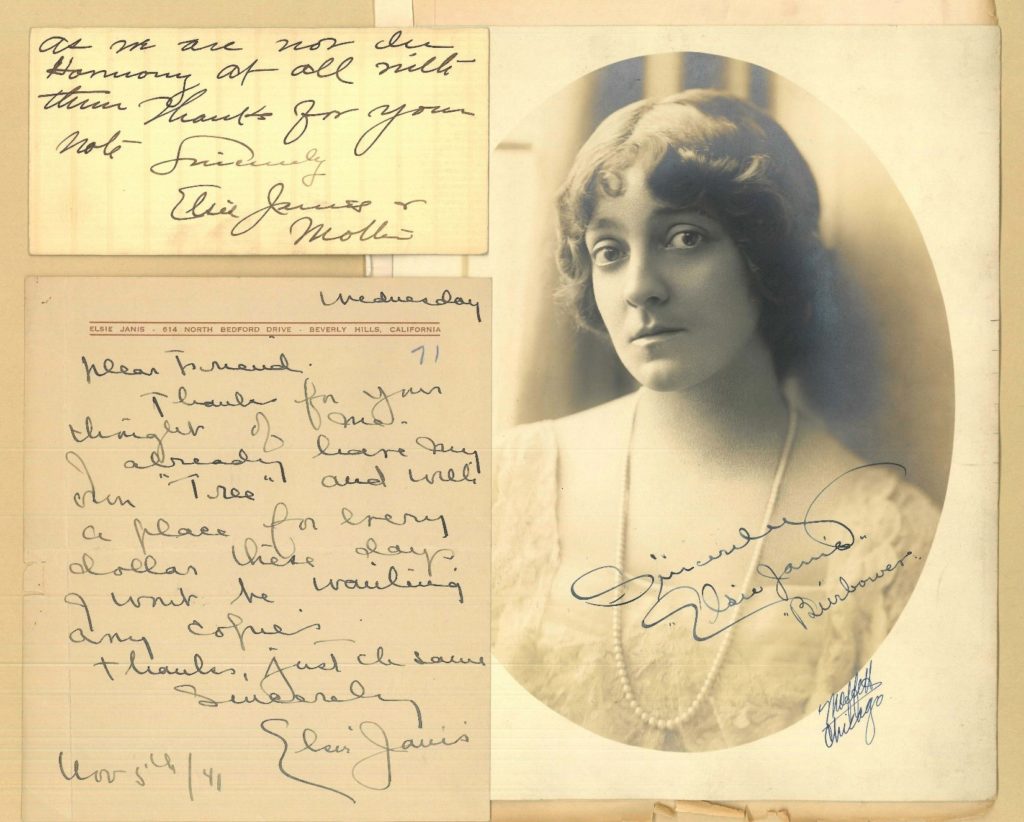 as we are not in
Harmony at all with
them Thanks for your
note
Sincerely
Elsie Janis &
Mother
Wednesday
ELSIE JANIS - 614 NORTH BEDFORD DRIVE - BEVERLY HILLS, CALIFORNIA
71
Dear Friend.
Thanks for your
thought of me.
I already have my
own "Tree" and with
a place for every
dollar these days
I wont be wanting
any copies.
Thanks, just the same
Sincerely
Elsie Janis
Nov 5th/41
Sincerely
"Elsie Janis"
"Bierbower."
Moffett
Chicago